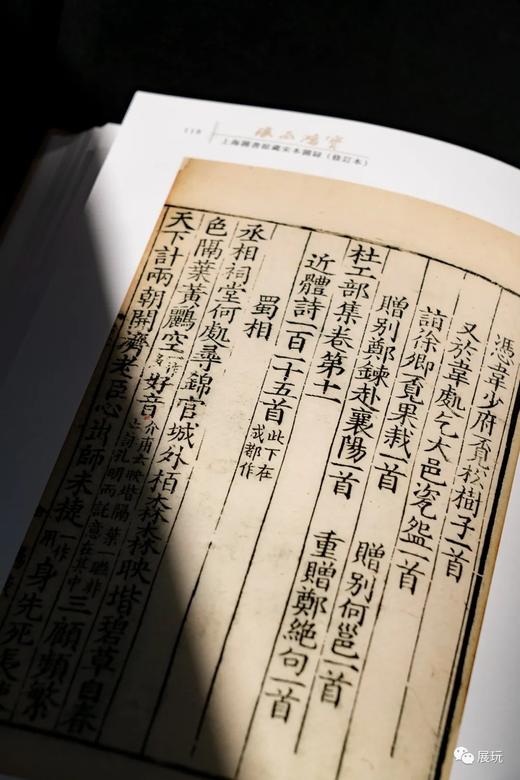 118
琅函鴻寶
上海圖書館藏宋本圖録（修訂本）
憑韋少府覔松樹子一首
又於韋處乞大邑瓷盌一首
詣徐卿覔果栽一首 贈別何邕一首
贈別鄭鍊赴襄陽一首 重贈鄭絕句一首
杜工部集卷第十一
近體詩一百一十五首 此下在成都作
蜀相
丞相祠堂何處尋錦官城外柏森森映堦碧草自春
色隔葉黃鸝空一作多好音介甫云映堦隔葉一聯非止詠孔明而託意在其中三顧頻繁
天下計兩朝開濟老臣心出師未捷一作用身先死長
展玩